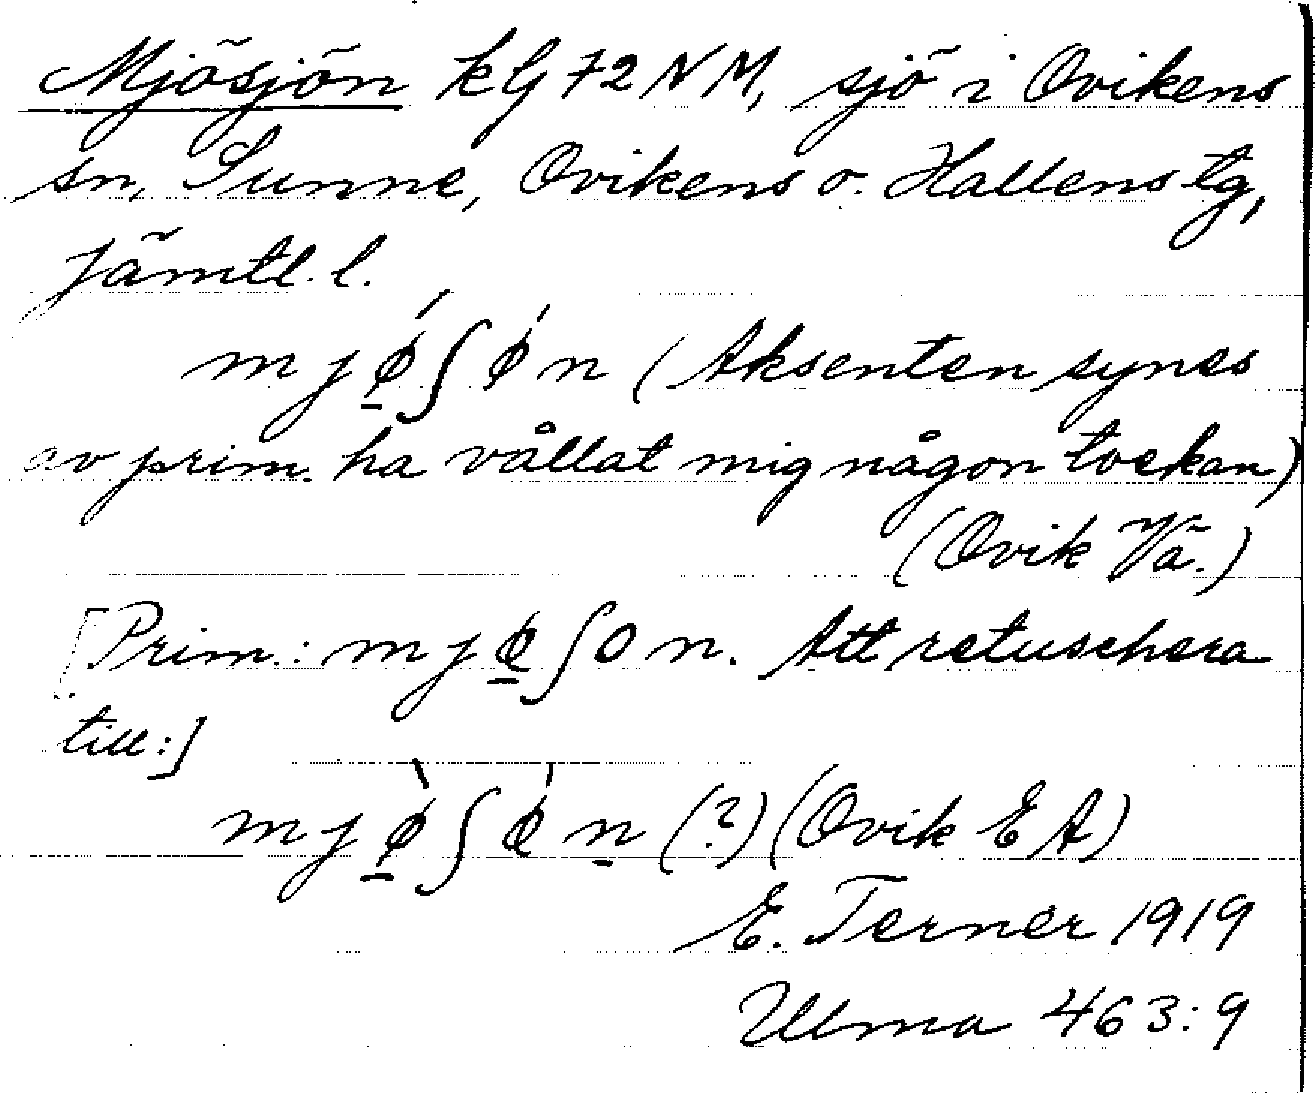 Mjösjön kG 72 NM, sjö i Ovikens
sn, Sunne, Ovikens o. Hallens tg,
Jämtl. l.
m j ǿ̲ ʃ ǿ n (Aksenten synes
av prim. ha vållat mig någon tvekan)
(Ovik Vä.)
[Prim.: m j ø̲ ʃ o n. Att retuschera
till:]
m j ø̲̀ ʃ ǿ n̲ (?) (Ovik E A)
E. Terner 1919
Ulma 463:9